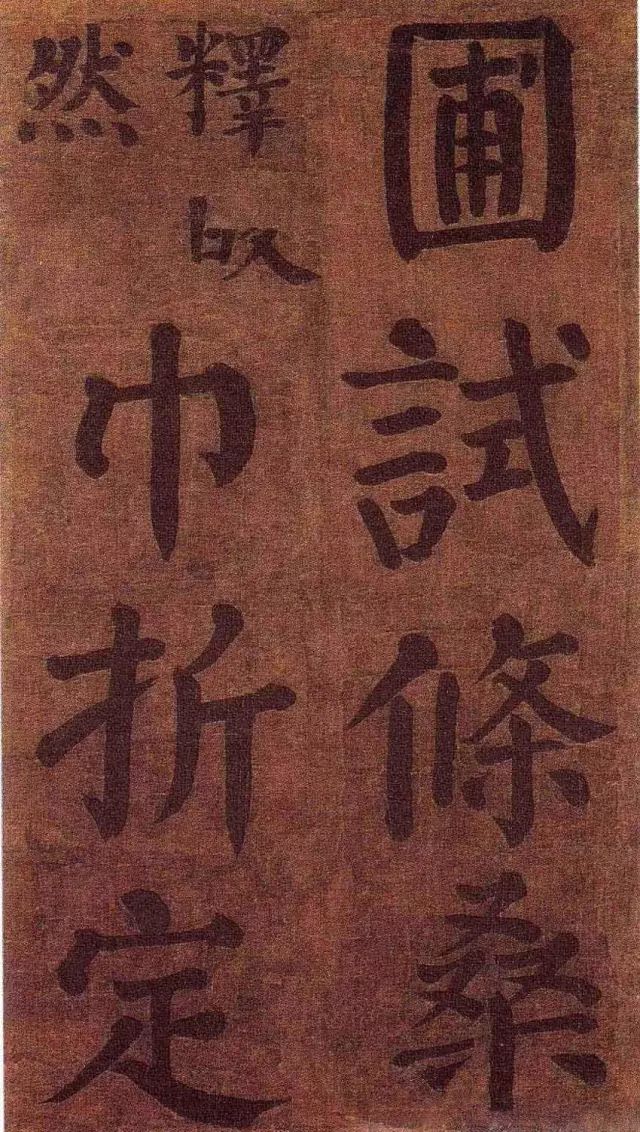 圃試條桑
釋
然
巾折定